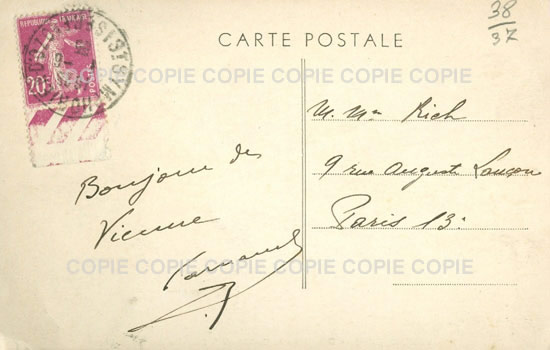 38
37
REPUBLIQUE FRANCAISE
20c
POSTES
CARTE POSTALE
COPIE COPIE COPIE COPIE COPIE COPIE
M. Mme Rich
9 rue Auguste Lançon
Paris 13e
Bonjour de
Vienne
COPIE COPIE COPIE COPIE COPIE COPIE